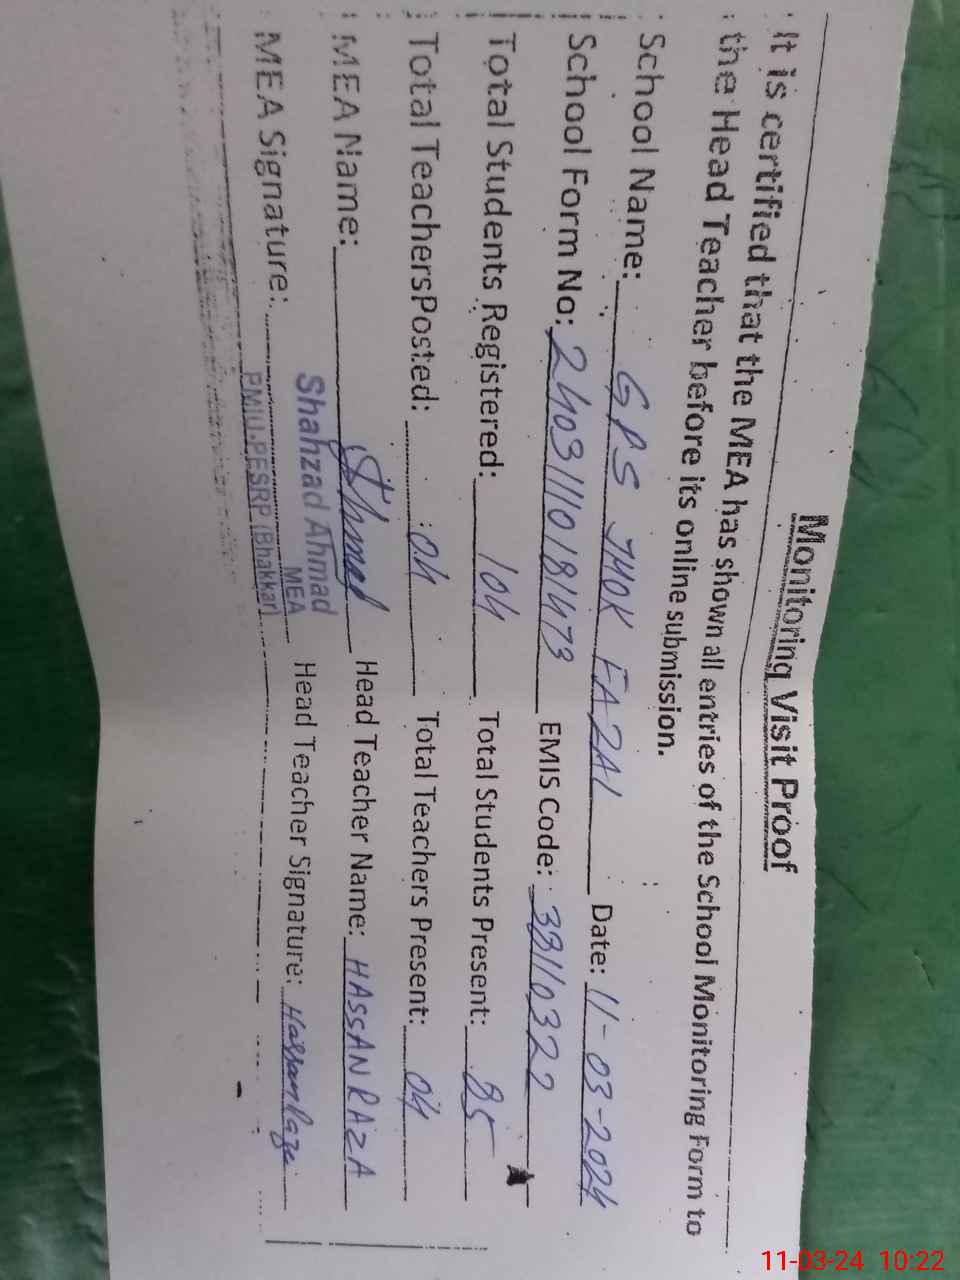 Monitoring Visit Proof
It is certified that the MEA has shown all entries of the School Monitoring Form to
the Head Teacher before its online submission.
School Name: GPS JHOK FAZAL Date: 11-03-2024
School Form No: 24031110181473 EMIS Code: 33110322
Total Students Registered: 104 Total Students Present: 85
Total TeachersPosted: 04 Total Teachers Present: 04
MEA Name: Ahmed Head Teacher Name: HASSAN RAZA
MEA Signature: Shahzad Ahmad Head Teacher Signature: Hassan Raza
MEA
PMIU-PESRP (Bhakkar)
11-03-24 10:22